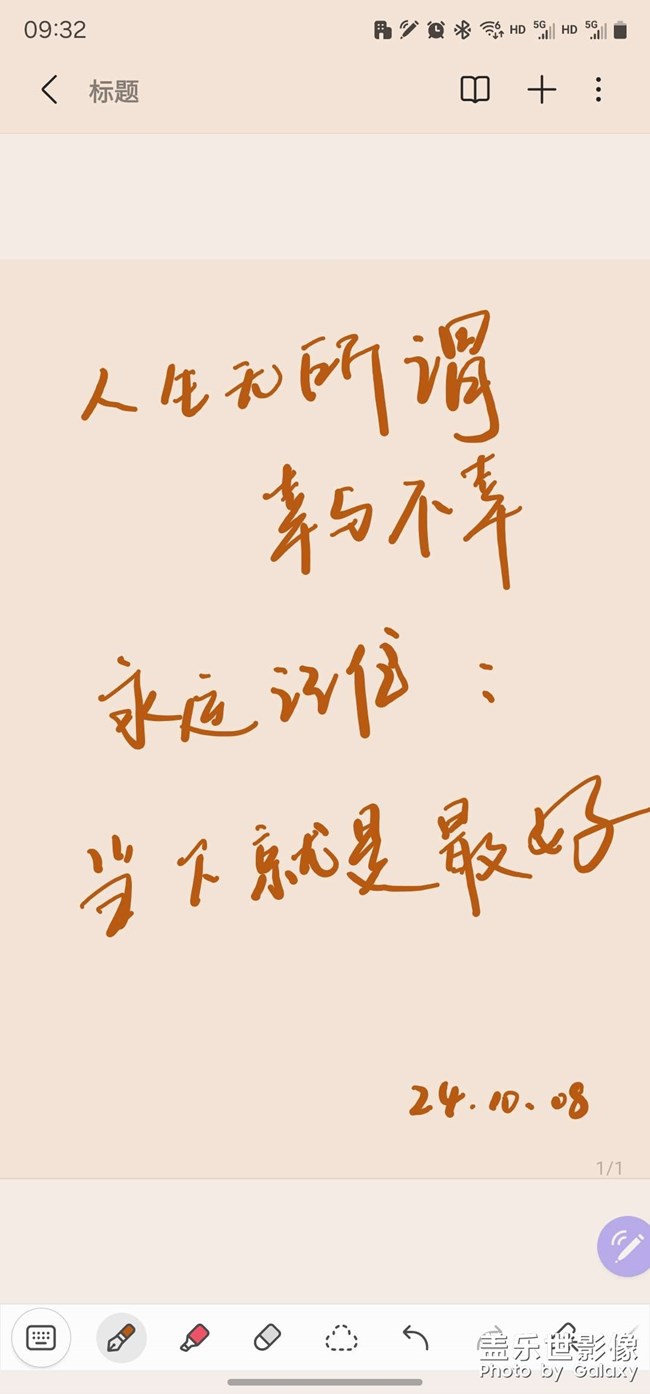 09:32
HD 5G HD 5G
标题
人生无所谓
幸与不幸
永远记住：
当下就是最好
24.10.08
1/1
盖乐世影像
Photo by Galaxy